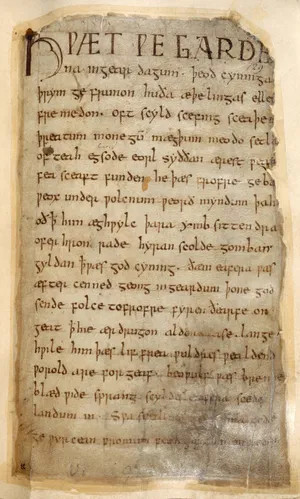 HǷÆT ǷE GARDE
na ingear dagum. þeod cyninga
þrym ge frunon huða æþelingas elle
fre medon. oft scyld scefing sceaþe
þreatum monegū mægþum meodo setla
of teah egsode eorl syððan ærest ƿear
fea sceaft funden he þæs frofre geba
ƿeox under ƿolcnum ƿeorð myndum þah
oð ꝥ him æghƿylc þara ymb sittendra
ofer hron rade hyran scolde gomban
gyldan ꝥ ƿæs god cyning. ðæm eafera ƿæs
æfter cenned geong ingeardum þone god
sende folce tofrofre fyren ðearfe on
geat ꝥ hie ær drugon aldor ase. lange
hƿile him þæs lif frea ƿuldres ƿealdend
ƿorold are for geaf. beoƿulf ƿæs breme
blæd ƿide sprang scyldes eafera scede
landum in. Sƿa
ge ƿyrcean fromum